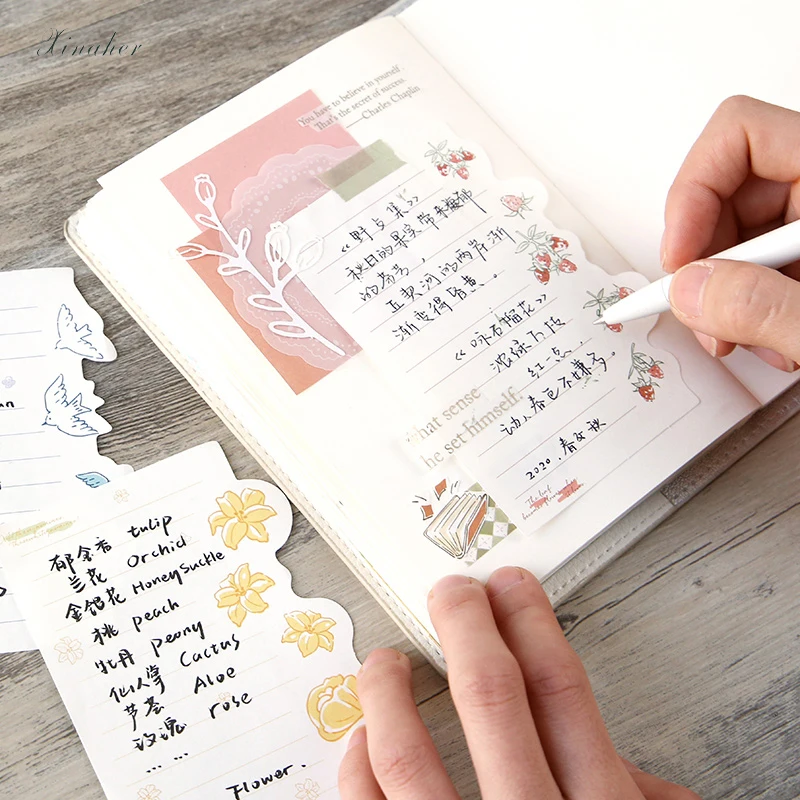 Xinaher
You have to believe in yourself.
That's the secret of success.
——Charles Chaplin
《野与集》
秋日的果实带来馥郁
的芬芳，
且黄河的两岸渐
渐变得昏黄。
《咏石榴花》
浓绿万枝
红一点，
动人春色不须多。
2020.春女秋
that sense
he set himself.
The leaf
郁金香 tulip
兰花 Orchid
金银花 Honeysuckle
桃 peach
牡丹 peony
仙人掌 Cactus
芦荟 Aloe
玫瑰 rose
... ...
Flower.